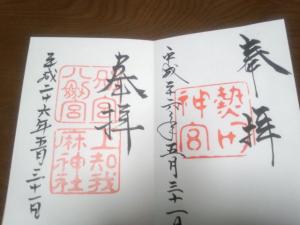 奉拝
熱田神宮
平成二十六年五月三十一日
奉拝
別宮八劔宮
上知我麻神社
平成二十六年五月三十一日